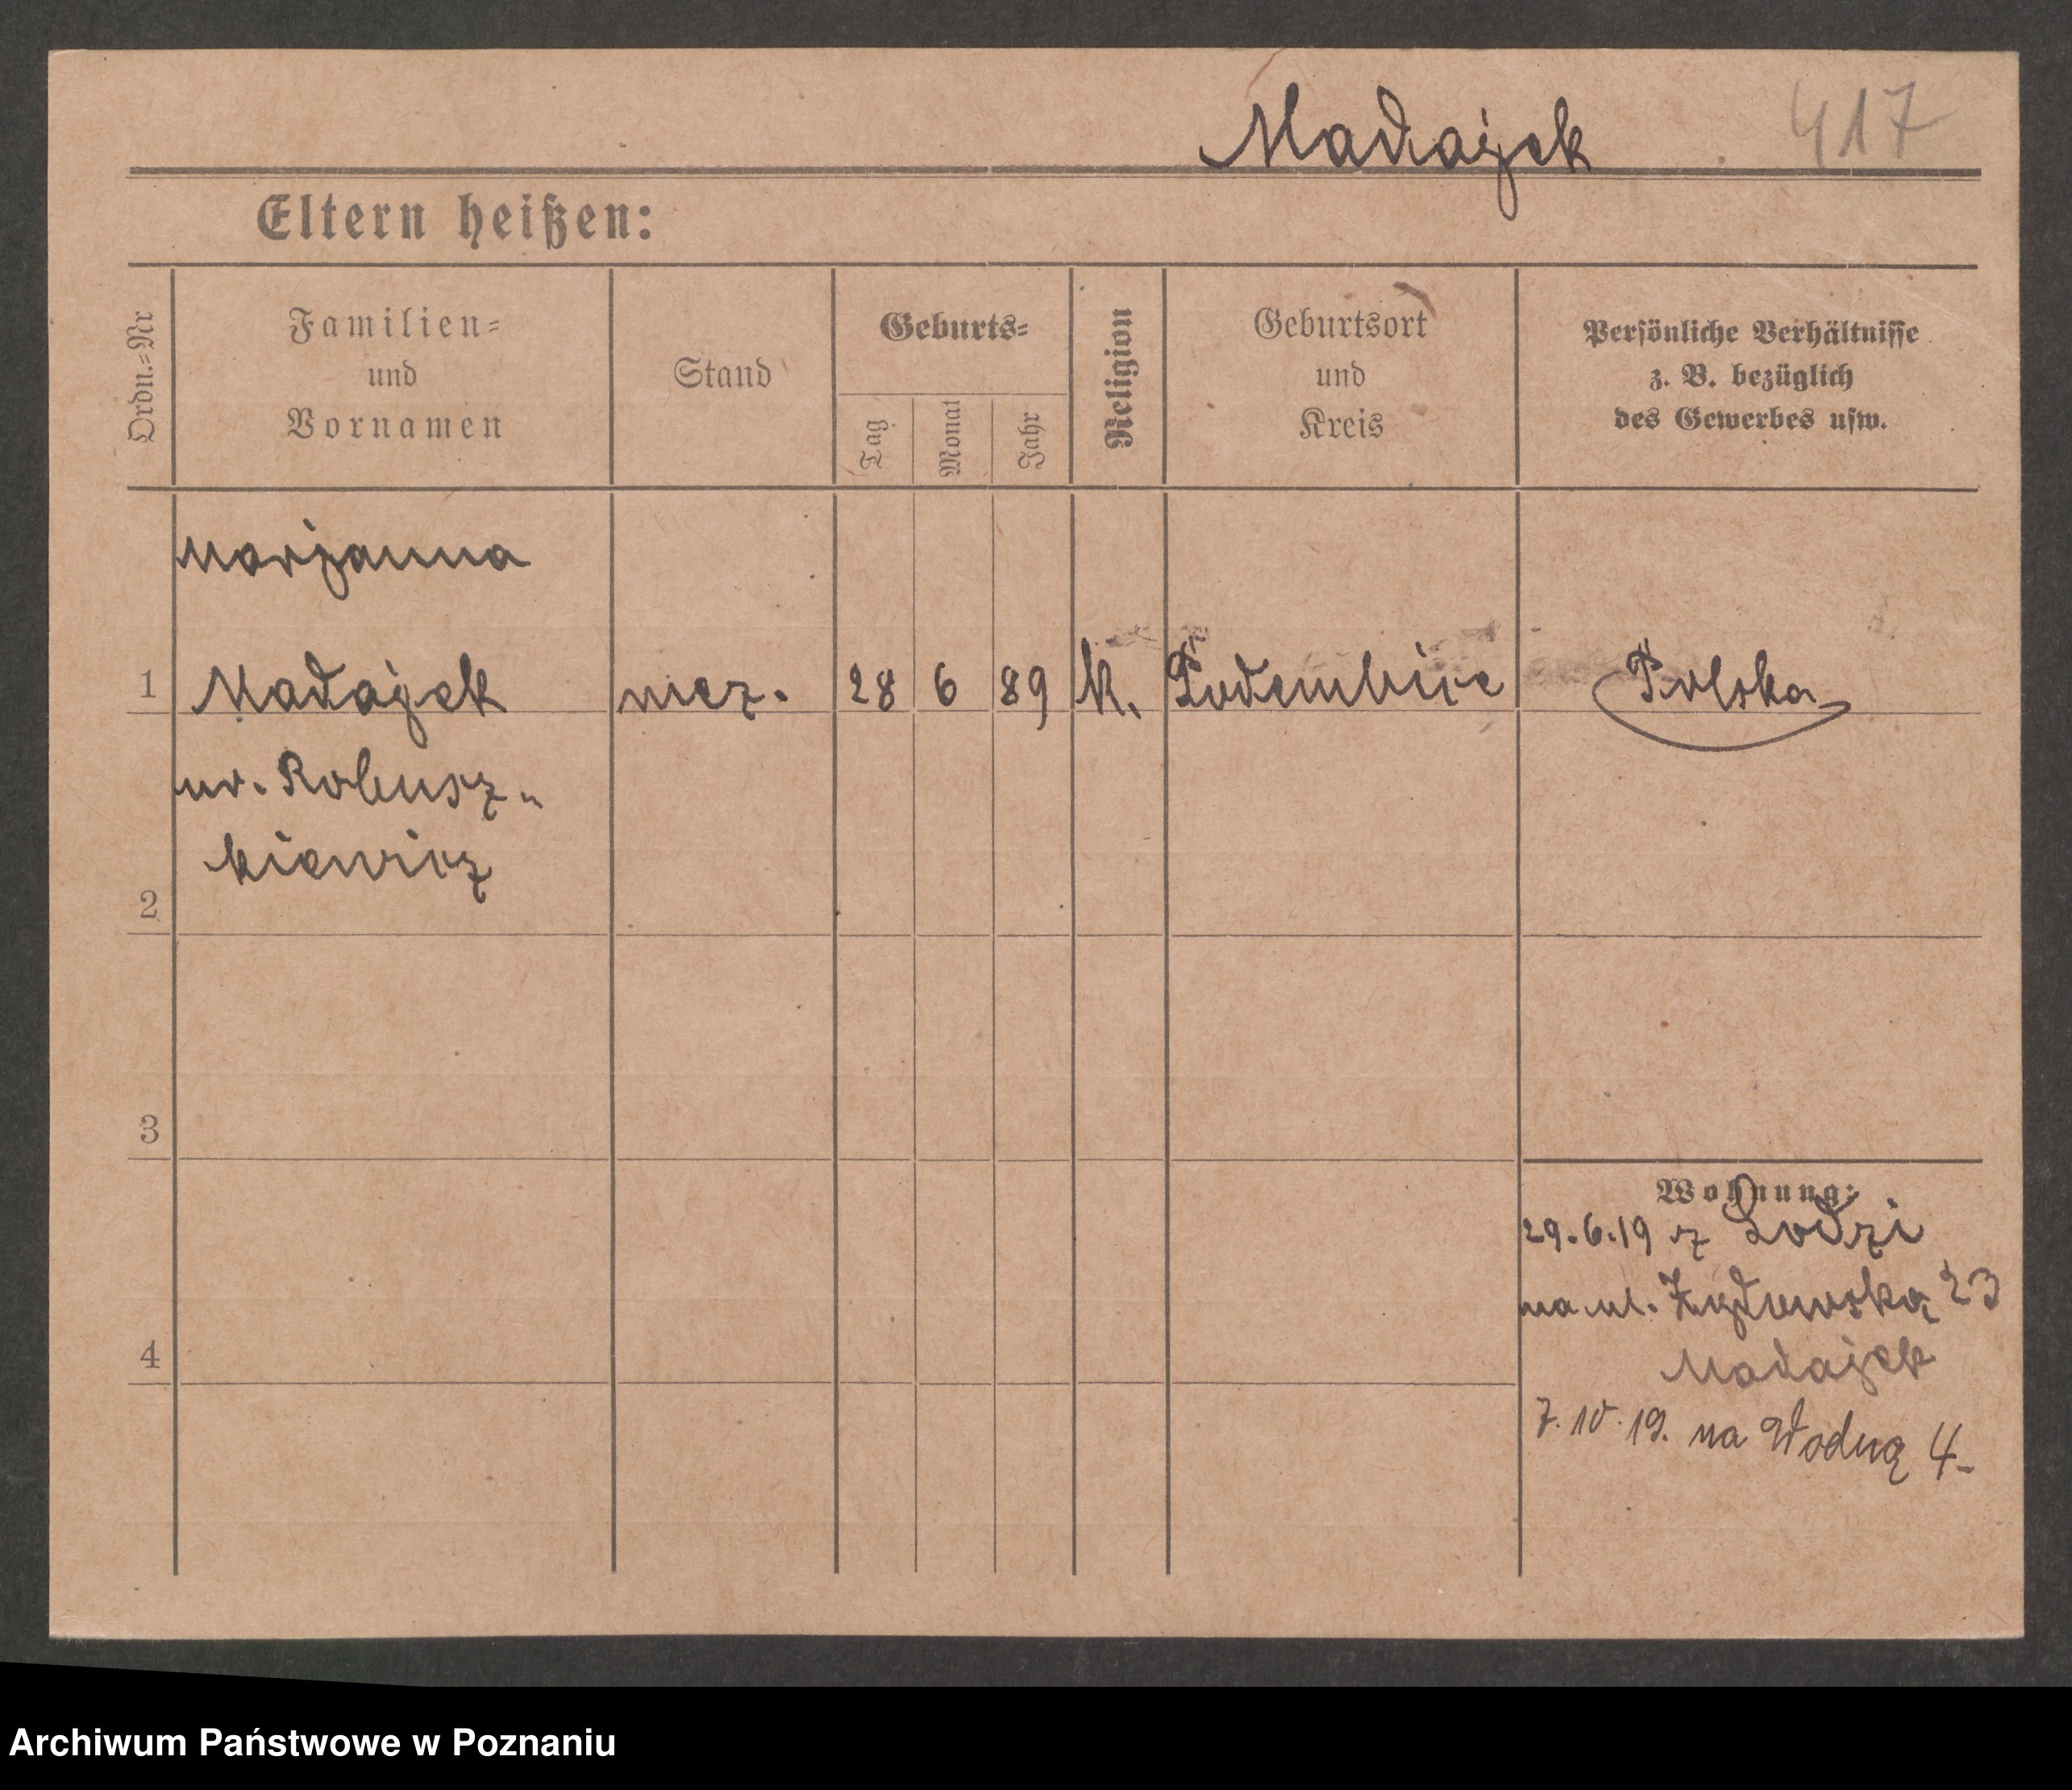 Madajek 417
Eltern heißen:
Ordn.=Nr
Familien=
und
Vornamen
Stand
Geburts=
Tag
Monat
Jahr
Religion
Geburtsort
und
Kreis
Persönliche Verhältnisse
z. B. bezüglich
des Gewerbes usw.
Marjanna
1 Madajek męz. 28 6 89 k. Podembice Polska
ur. Robusz-
kiewicz
2
3
4
Wohnung:
29.6.19 z Łodzi
na ul. Żydowską 23
Madajek
7.10.19. na Wodną 4-
Archiwum Państwowe w Poznaniu